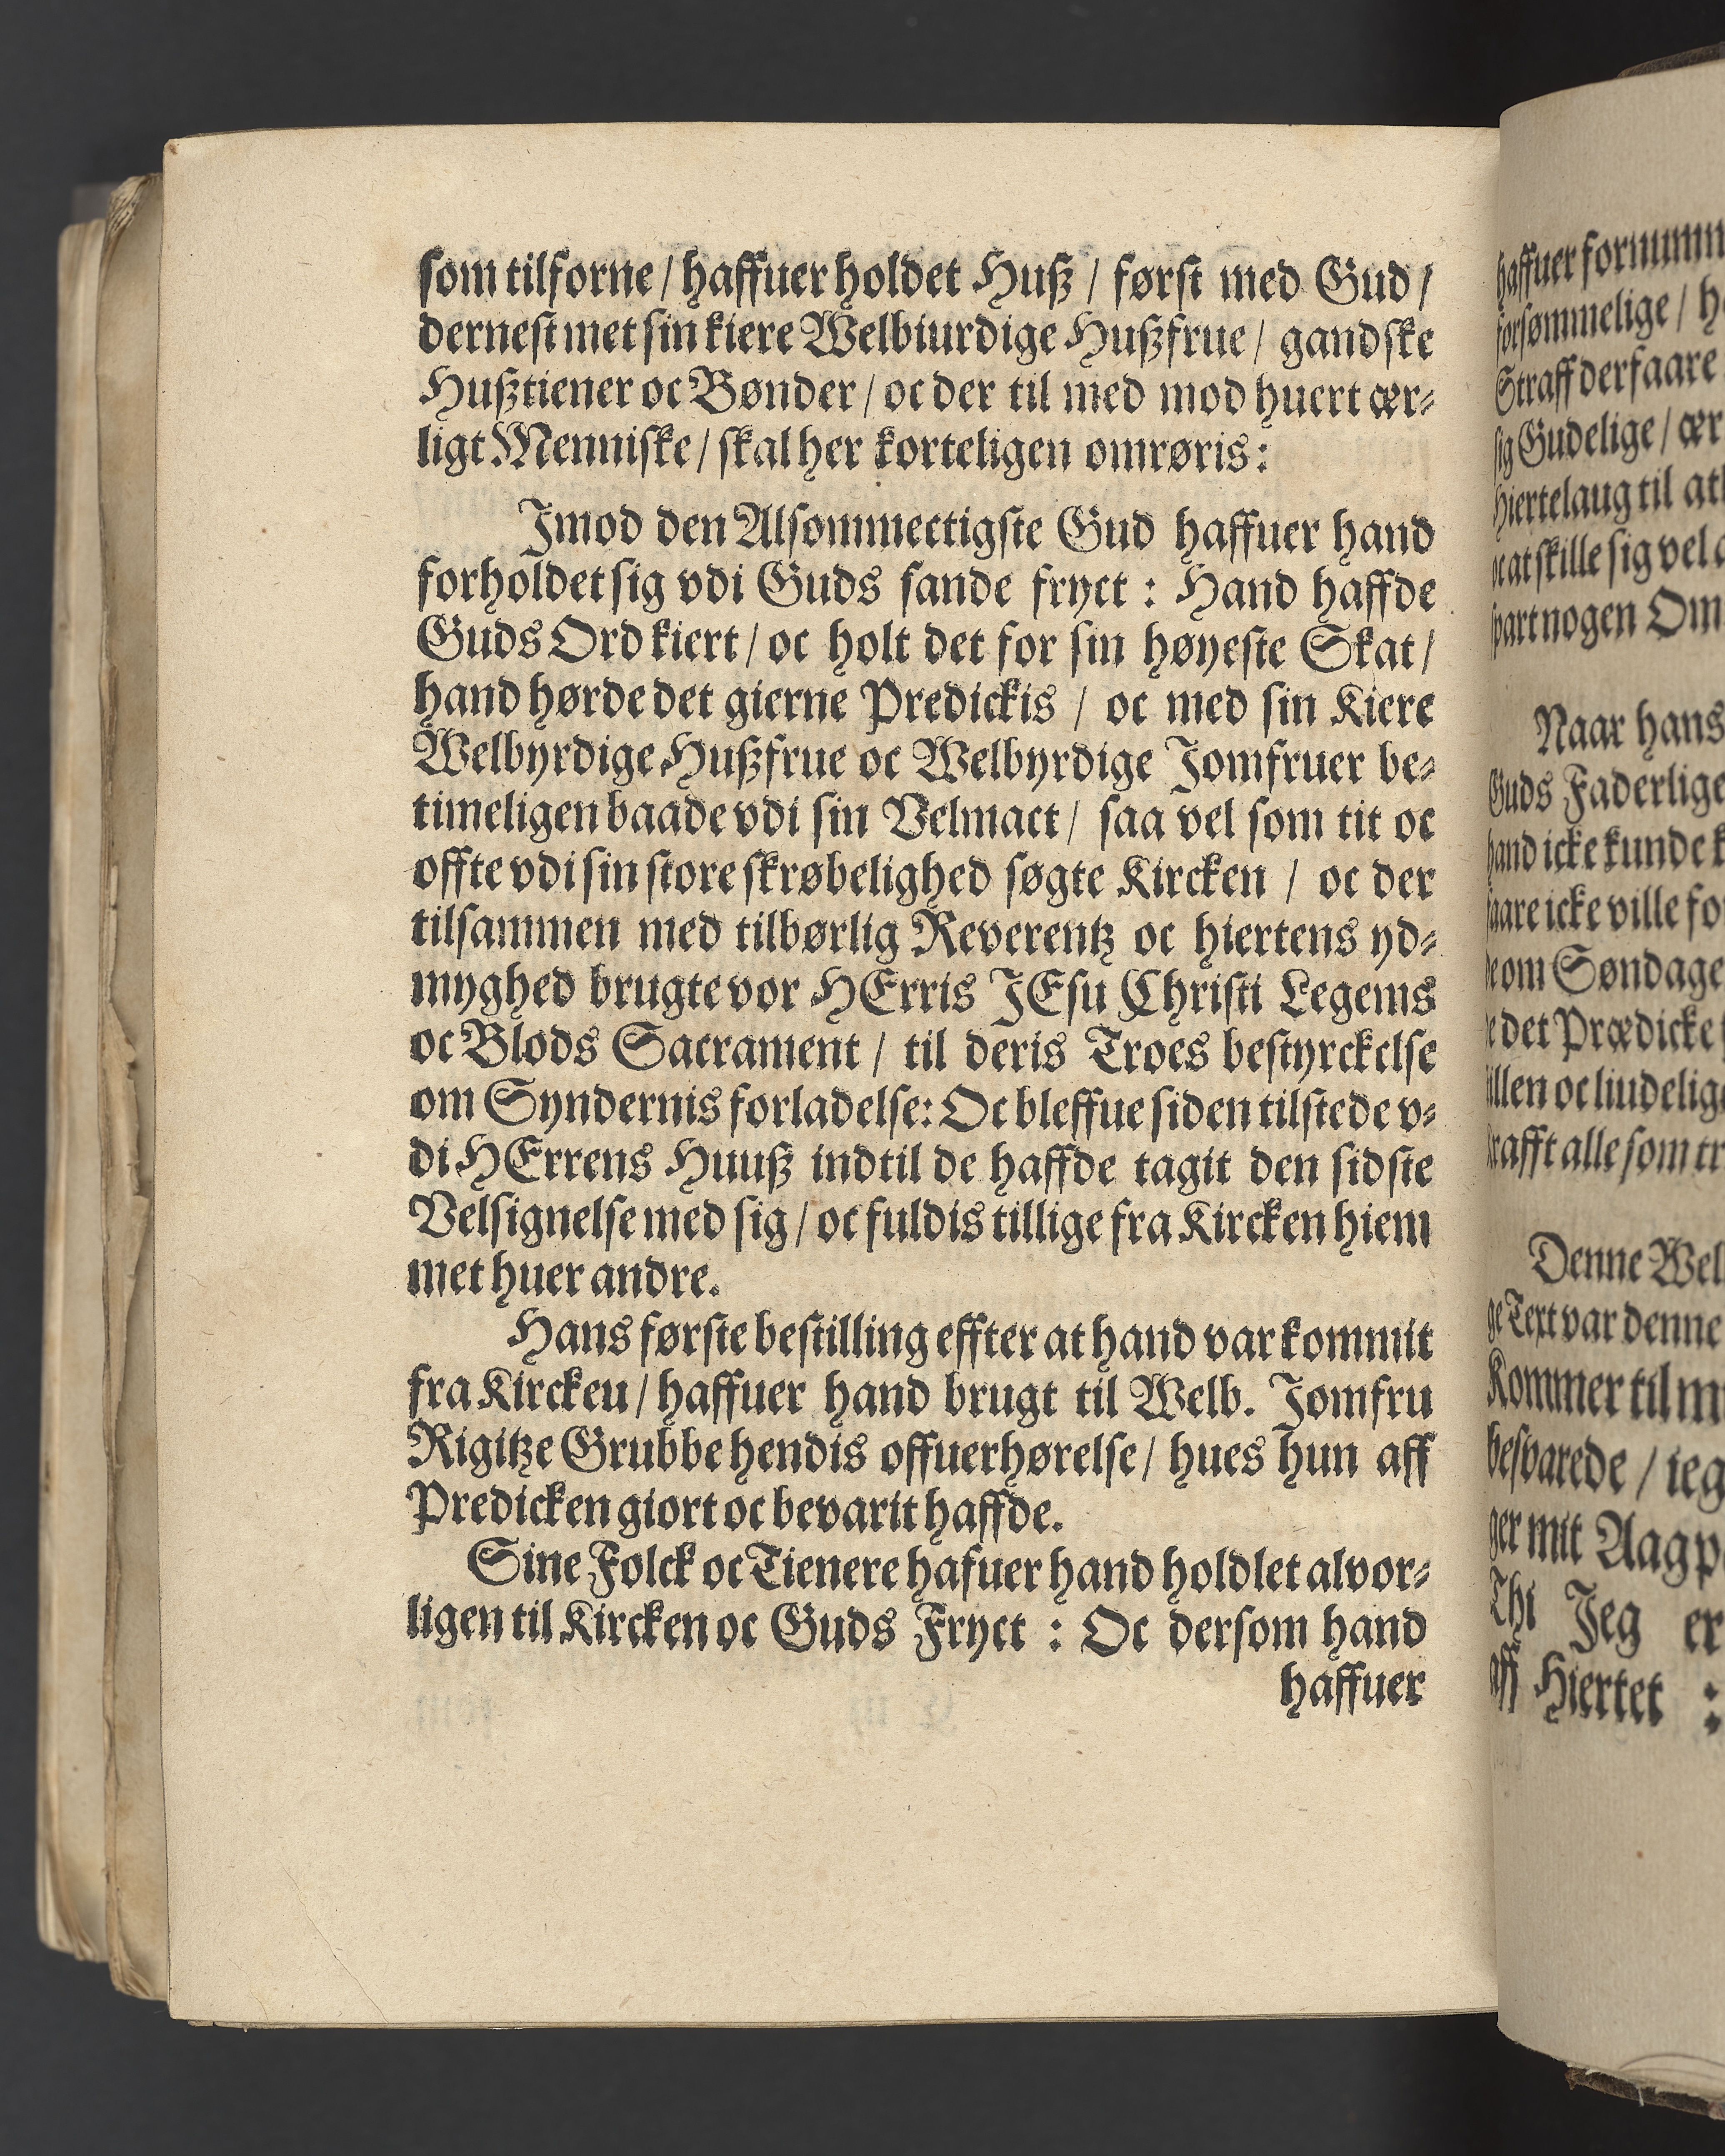 som tilforne / haffuer holdet Huß / først med Gud /
dernest met sin kiere Welbiurdige Hußfrue / gandske
Hußtiener oc Bønder / oc der til med mod huert ær⸗
ligt Menniske / skal her korteligen omrøris:
Jmod den Alsommectigste Gud haffuer hand
forholdet sig vdi Guds sande fryct : Hand haffde
Guds Ord kiert / oc holt det for sin høyeste Skat /
hand hørde det gierne Predickis / oc med sin Kiere
Welbyrdige Hußfrue oc Welbyrdige Jomfruer be⸗
timeligen baade vdi sin Velmact / saa vel som tit oc
offte vdi sin store skrøbelighed søgte Kircken / oc der
tilsammen med tilbørlig Reverentz oc hiertens yd⸗
myghed brugte vor HErris JEsu Christi Legems
oc Blods Sacrament / til deris Troes bestyrckelse
om Syndernis forladelse: Oc bleffue siden tilstede v⸗
di HErrens Huuß indtil de haffde tagit den sidste
Velsignelse med sig / oc fuldis tillige fra Kircken hiem
met huer andre.
Hans første bestilling effter at hand var kommit
fra Kirckeu / haffuer hand brugt til Welb. Jomfru
Rigitze Grubbe hendis offuerhørelse / hues hun aff
Predicken giort oc bevarit haffde.
Sine Folck oc Tienere hafuer hand holdlet alvor⸗
ligen til Kircken oc Guds Fryct : Oc dersom hand
haffuer
haffuer
forsømmelige /
Straff derfaare
sig Gudelige / ær
Hiertelaug til
oc at skille sig vel
nogen
Naar hans
Guds Faderlige
hand icke kunde
icke ville
om Søndage
det Prædicke
oc liudelig
alle som
Denne Wel
Text var denne
Kommer til
besvarede / ieg
mit Aag
Thi Jeg er
aff Hiertet :